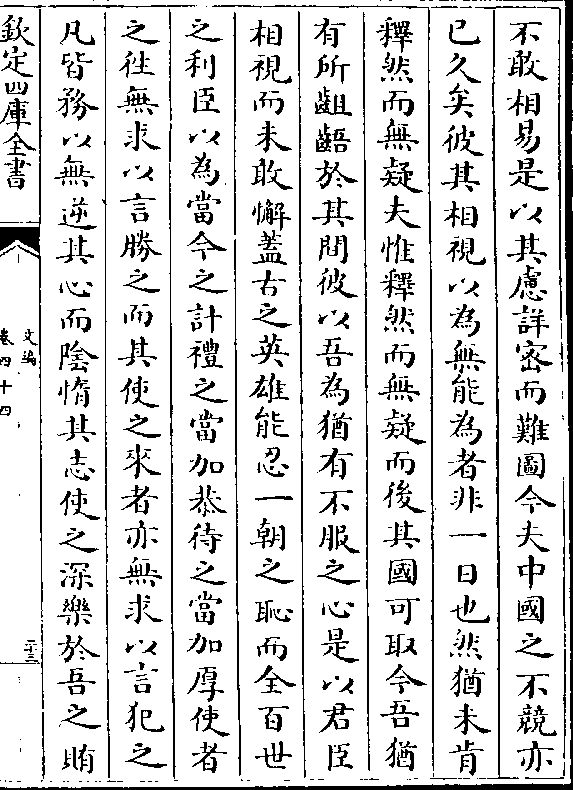 不敢相易是以其慮詳密而難圖今夫中國之不競亦
已久矣彼其相視以為無能為者非一日也然猶未肯
釋然而無疑夫惟釋然而無疑而後其國可取今吾猶
有所齟齬於其間彼以吾為猶有不服之心是以君臣
相視而未敢懈蓋古之英雄能忍一朝之恥而全百世
之利臣以為當今之計禮之當加恭待之當加厚使者
之徃無求以言勝之而其使之來者亦無求以言犯之
凡皆務以無逆其心而陰惰其志使之深樂於吾之賄
欽定四庫全書
文編
卷四十四
二十三